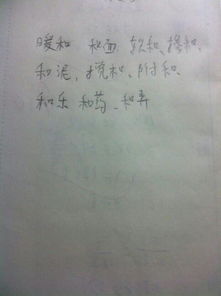 暖和 和面、软和、掺和、
和泥、搅和、附和、
和乐 和药、和弄